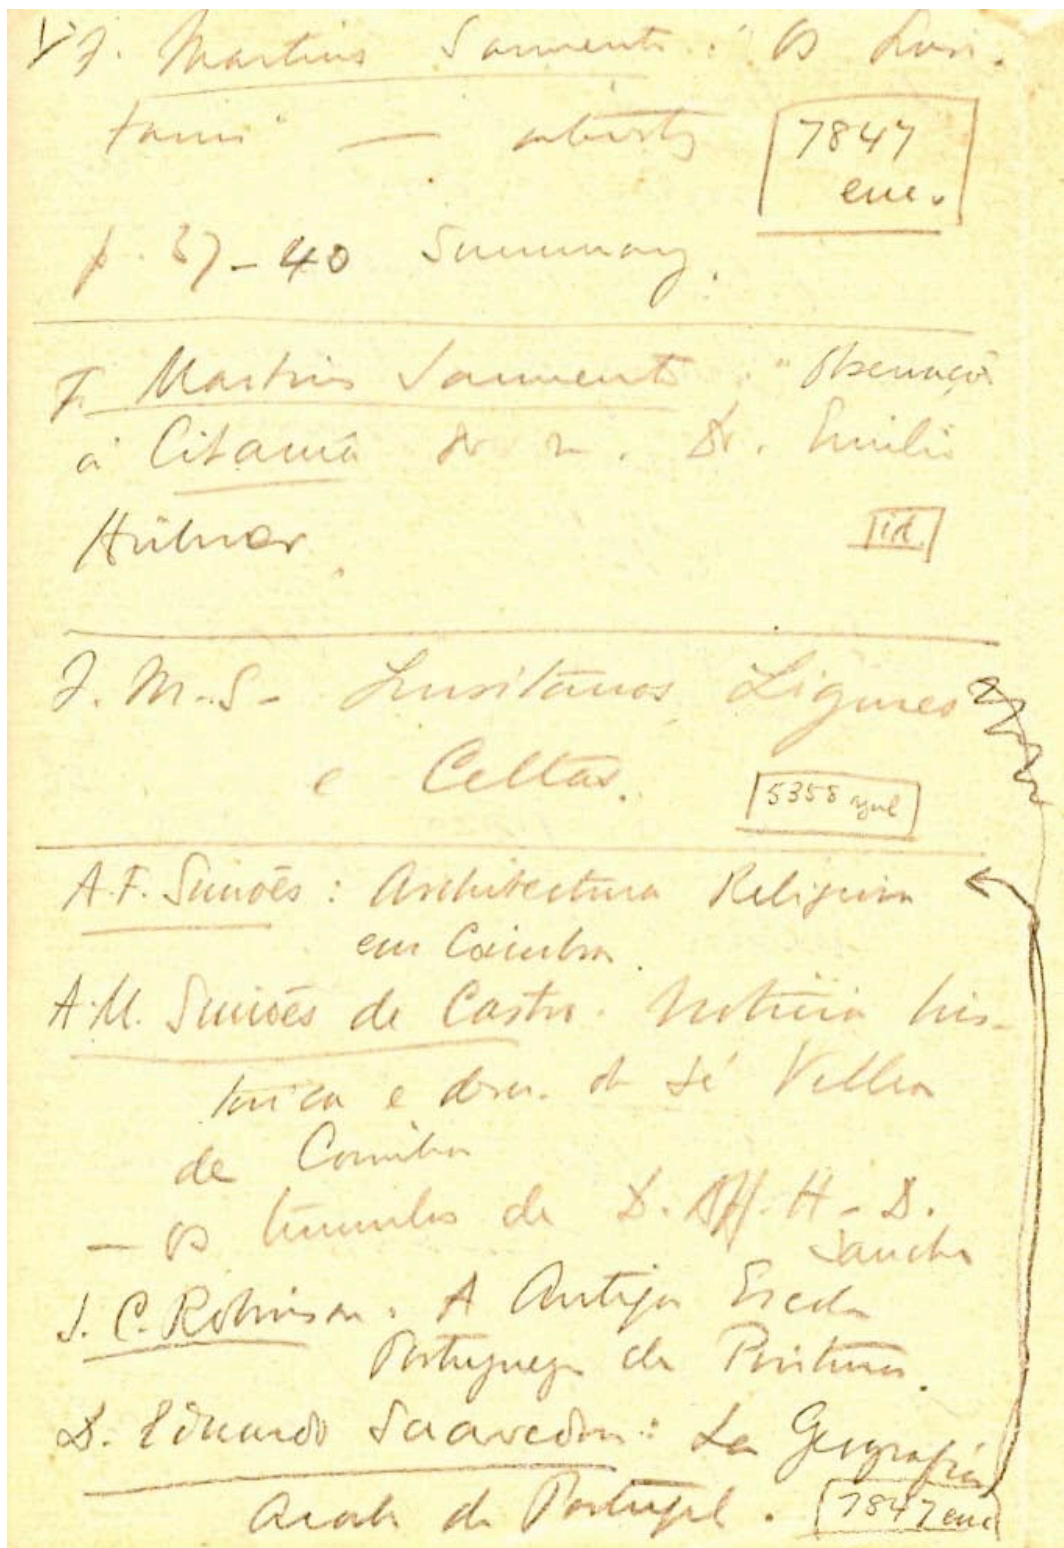 F. Martins Sarmento: "Os Lusi-
tanos" —
7847
enc.
p. 37-40 Summary.
F. Martins Sarmento: "Observaçõ
à Citania do Sr. Dr. Emilio
Hübner
id.
F. M. S - Lusitanos, Ligures
e Celtas.
5358 azul
A. F. Simões: Architectura Religiosa
em Coimbra.
A. M. Simões de Castro. Noticia his-
torica e descr. da Sé Velha
de Coimbra
— Os tumulos de D. Aff. H - D.
Sancho
J. C. Robinson: A Antiga Escola
Portugueza de Pintura.
D. Eduardo Saavedra: La Geografia
Arabe de Portugal.
7847 enc